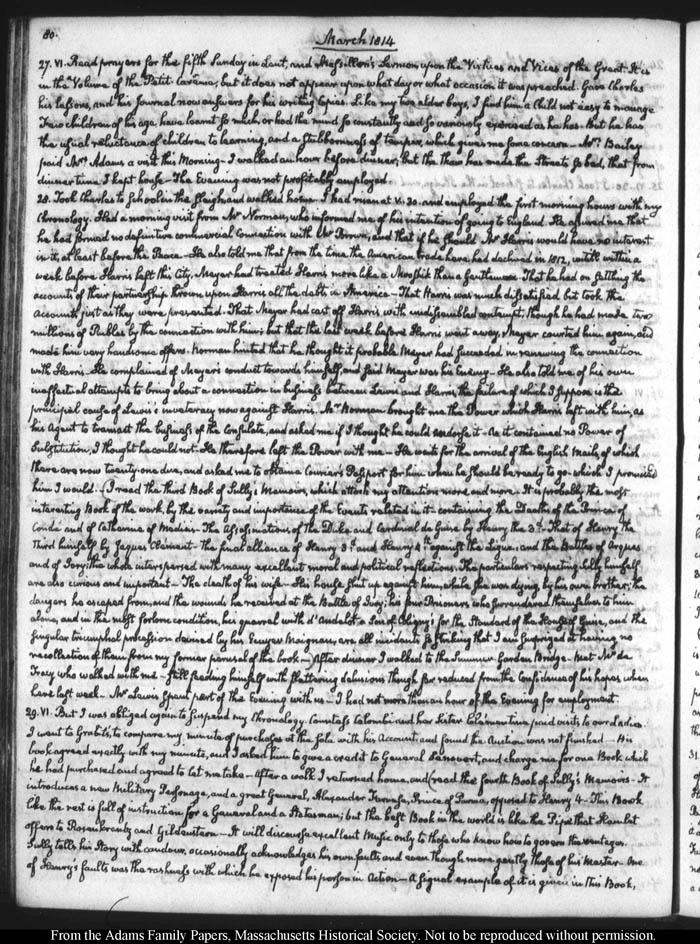 80.
March 1814
27. VI. Read prayers for the fifth Sunday in Lent, and Massillon's Sermon upon the Virtues and Vices of the Great. It is
in the Volume of the Petit-Carême; but it does not appear upon what day or what occasion it was preached. Gave Charles
his lessons, and his Journal now answers for his writing Copies. Like my two elder boys, I find him a Child not easy to manage
Few children of his age, have learnt so much, or had the mind so constantly and so variously exercised as he has. But he has
the usual reluctance of children to learning, and a stubbornness of temper, which gives me some concern. Mrs. Bailey
paid Mrs. Adams a visit this Morning. I walked an hour before dinner; but the thaw has made the Streets so bad, that from
dinner time I kept house. The Evening was not profitably employed.
28. Took Charles to School in the sleigh and walked home. I had risen at VI.30. and employed the first morning hours with my
Chronology. Had a morning visit from Mr Norman, who informed me of his intention of going to England. He assured me that
he had formed no definitive commercial connection with Mr Brown; and that if he should Mr Harris would have no interest
in it, at least before the Peace. He also told me that from the time the American trade here, had declined in 1812, until within a
week before Harris left this City, Meyer had treated Harris more like a Mougik than a Gentleman. That he had on settling the
accounts of their partnership thrown upon Harris all the debts in America. That Harris was much dissatisfied but took the
accounts just as they were presented. That Meyer had cast off Harris with undissembled contempt, though he had made two
millions of Rubles by the connection with him; but that the last week before Harris went away, Meyer courted him again, and
made him very handsome offers. Norman hinted that he thought it probable Meyer had succeeded in renewing the connection
with Harris. He complained of Meyer's conduct towards himself, and said Meyer was his Enemy. He also told me of his own
ineffectual attempts to bring about a connection in business between Lewis and Harris, the failure of which I suppose is the
principal cause of Lewis's inveteracy now against Harris. Mr Norman brought me the Power which Harris left with him, as
his Agent to transact the business of the Consulate, and asked me if I thought he could endorse it. As it contained no Power of
Substitution, I thought he could not. He therefore left the Power with me. He waits for the arrival of the English Mails, of which
there are now twenty one due, and asked me to obtain a Courier's Passport for him when he should be ready to go. which I promised
him I would. I read the third Book of Sully's Memoirs, which attract my attention more and more. It is probably the most
interesting Book of the work, by the variety and importance of the Events related in it. containing the Deaths of the Prince of
Condé and of Catherine of Medicis. The Assassinations of the Duke and Cardinal de Guise by Henry the 3d. That of Henry the
Third himself by Jaques Clement. The final alliance of Henry 3d. and Henry 4th against the Ligue; and the Battles of Arques
and of Ivry; the whole interspersed with many excellent moral and political reflections. The particulars respecting Sully himself
are also curious and important. The death of his wife. His house shut up against him, while she was dying, by his own brother; the
dangers he escaped from, and the wounds he received at the Battle of Ivry; his four Prisoners who surrendered themselves to him
alone, and in the most forlorn condition, his quarrel with d'Andelot a Son of Coligni; for the Standard of the House of Guise, and the
singular triumphal procession devised by his Ecuyer Maignan, are all incidents so striking that I am surprized at having no
recollection of them from my former perusal of the book. After dinner I walked to the Summer Garden Bridge. Met Mr de
Tracy who walked with me. Still feeding himself with flattering delusions though far reduced from the Confidence of his hopes when
here last week. Mr Lewis spent part of the Evening with us. I had not more than an hour of the Evening for employment.
29. VI. But I was obliged again to suspend my Chronology. Countess Colombi and her Sister Clementine paid visits to our Ladies.
I went to Grabit's, to compare my minute of purchases at the Sale with his Account and found the Auction was not finished. His
book agreed exactly with my minute, and I asked him to give a credit to General Sanovert, and charge me for one Book which
he had purchased and agreed to let me take. After a walk I returned home, and read the fourth Book of Sully's Memoirs. It
introduces a new Military Personage, and a great General, Alexander Farnese, Prince of Parma, opposed to Henry 4. This Book
like the rest is full of instruction for a General and a Statesman; but the best Book in the world is like the Pipe that Hamlet
offers to Rosenkrantz and Gildenstern. It will discourse excellent Music only to those who know how to govern the ventages.
Sully tells his Story with candour, occasionally acknowledges his own faults and even though more gently those of his Master. One
of Henry's faults was the rashness with which he exposed his person in Action. A signal example of it is given in This Book,
From the Adams Family Papers, Massachusetts Historical Society. Not to be reproduced without permission.